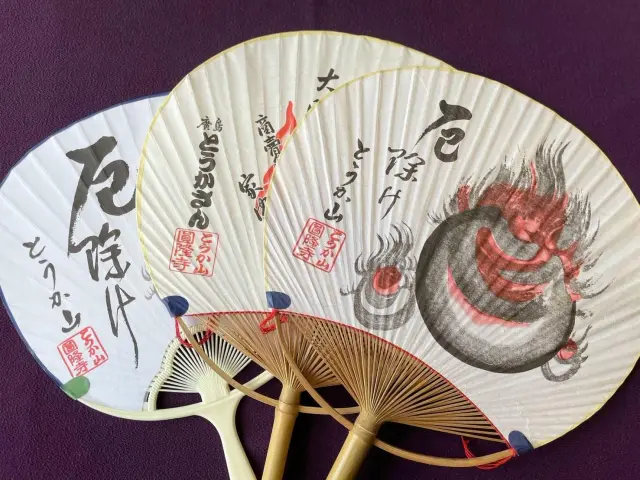 厄除け
とうか山
とうか山
圓隆寺
大
商賣
家内
廣島
とうかさん
とうか山
圓隆寺
厄
除け
とうか山
とうか山
圓隆寺